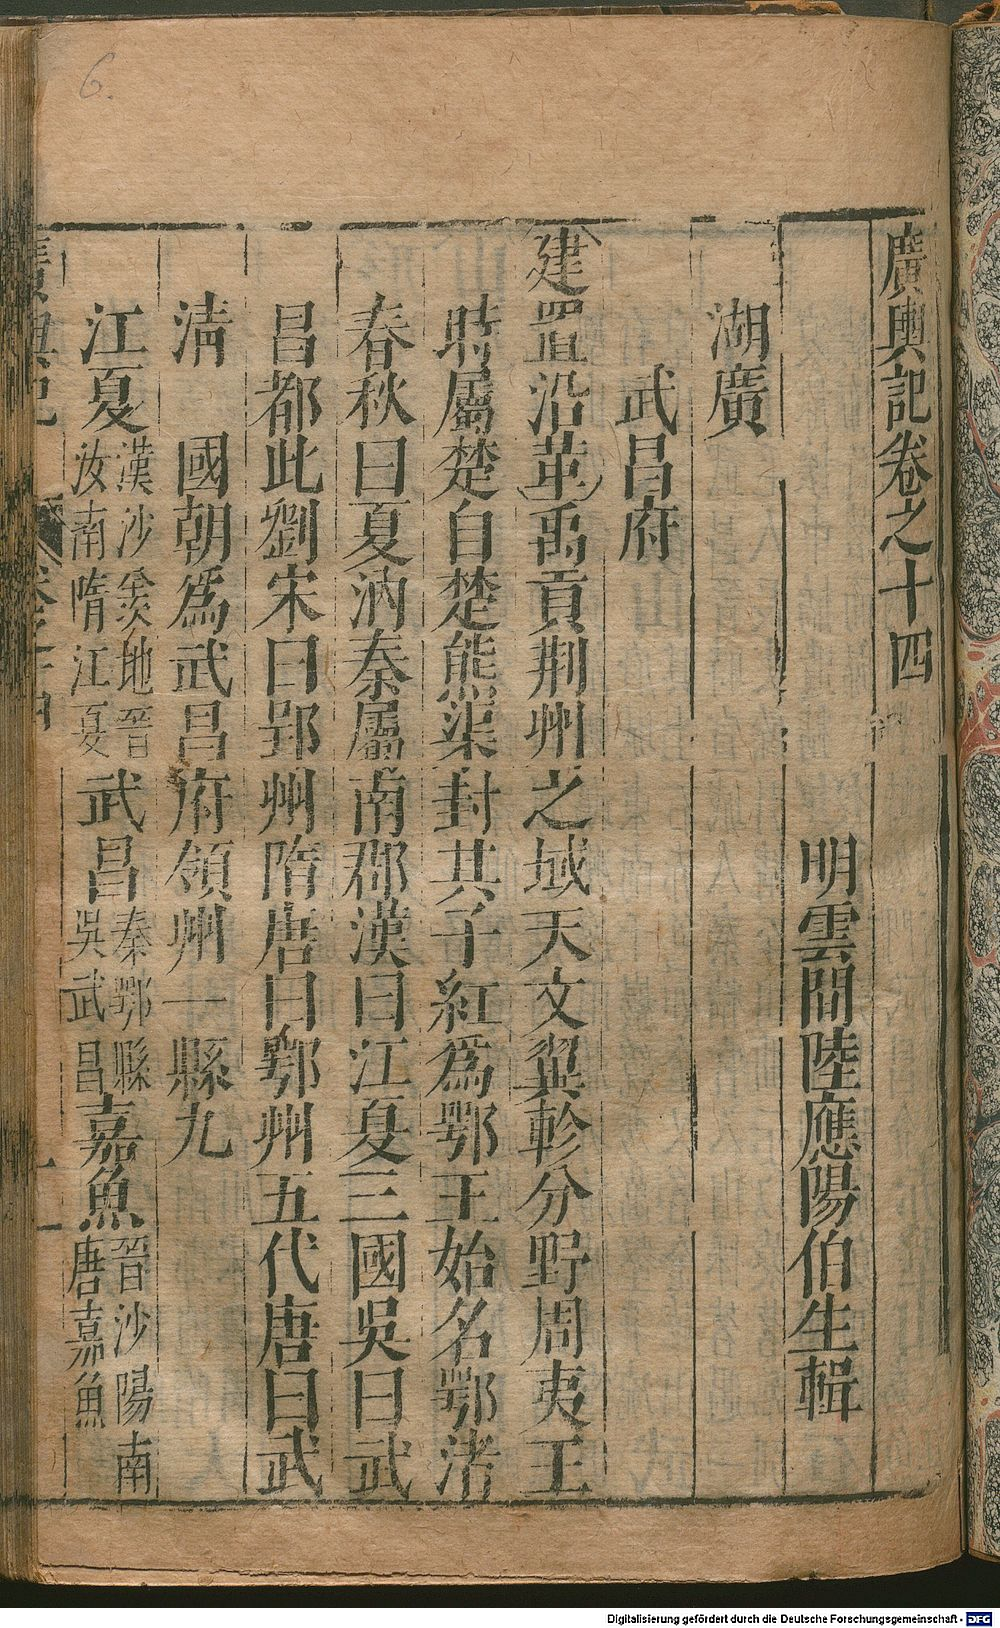 6.
廣輿記卷之十四
明雲間陸應陽伯生輯
湖廣
武昌府
建置沿革禹貢荆州之域天文翼軫分野周夷王
時屬楚自楚熊渠封其子紅爲鄂王始名鄂渚
春秋曰夏汭秦屬南郡漢曰江夏三國吳曰武
昌都此劉宋曰郢州隋唐曰鄂州五代唐曰武
清國朝爲武昌府領州一縣九
江夏漢沙羨地晉汝南隋江夏武昌秦鄂縣吳武昌嘉魚晉沙陽南唐嘉魚
廣輿記
卷之十四
一
Digitalisierung gefördert durch die Deutsche Forschungsgemeinschaft - DFG